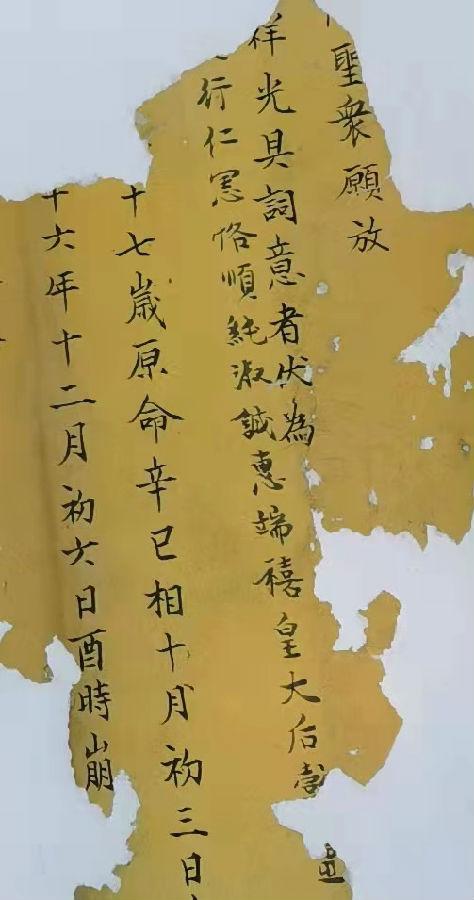 聖衆願放
祥光具詞意者伏為
行仁憲恪順純淑誠惠端禧皇大后
十七歲原命辛巳相十月初三日
十六年十二月初六日酉時崩